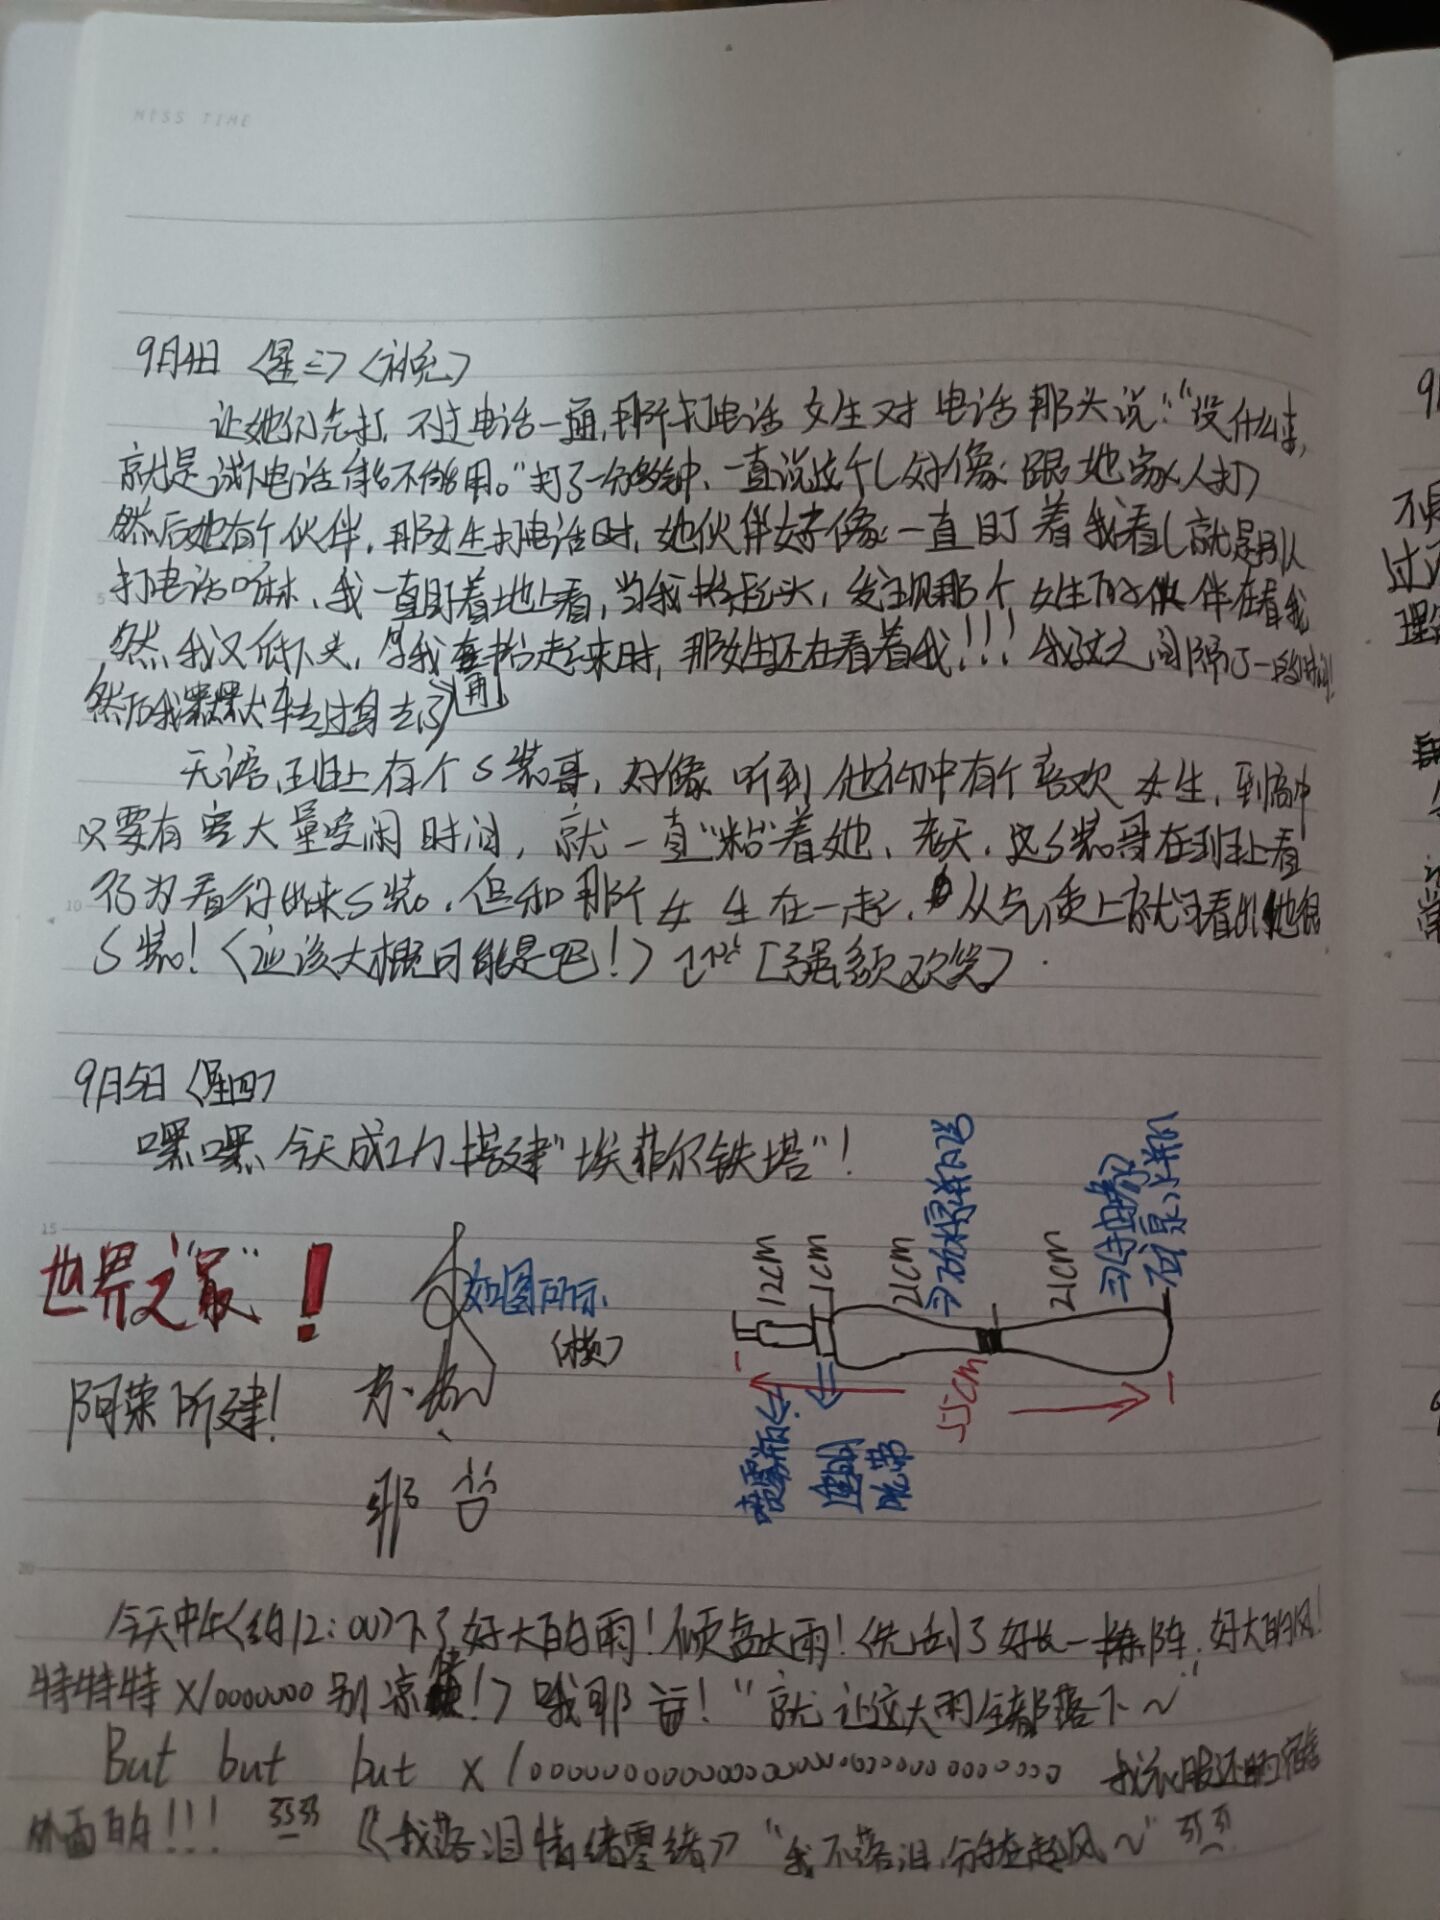 MISS TIME
9月4日〈星三〉〈补充〉
让她们先打,不过电话一通,那个打电话女生对电话那头说:“没什么事,
就是试下电话能不能用。”打了一分多钟、一直说这个(好像跟她家人打)
然后她有个伙伴,那女生打电话时,她伙伴好像一直盯着我看(就是别人
打电话嘛、我一直盯着地上看,当我抬起头,发现那个女生的伙伴在看我
然我又低下头,当我再抬起来时,那女生还在看着我!!!我这之间隔了一段时间!
然后我默默转过身去了
无语,班上有个S装哥,好像听到他初中有个喜欢女生,到高中
只要有大量空闲时间,就一直“粘”着她、聊天,这S装哥在班上看
不为看得出来S装。但和那个女生在一起,从气质上就可看出他很
S装!〈应该大概可能是吧!〉[强颜欢笑]
9月5日〈星四〉
嘿嘿今天成功搭建“埃菲尔铁塔”!
世界之“最”!
如图所示
(横)
阿荣所建!
耶
12cm
1cm
21cm
21cm
55cm
喷雾瓶
透明
胶带
今天中午〈约12:00〉下了好大的雨!倾盆大雨!〈先刮了好长一阵,好大的风!
特特特×10000000别凉!〉哦耶!“就让这大雨全都落下~”
But but but ×10000000000000000000000000000 我衣服还晒宿舍
外面的!!!《我落泪情绪零绪》“我不落泪,分手在起风~”